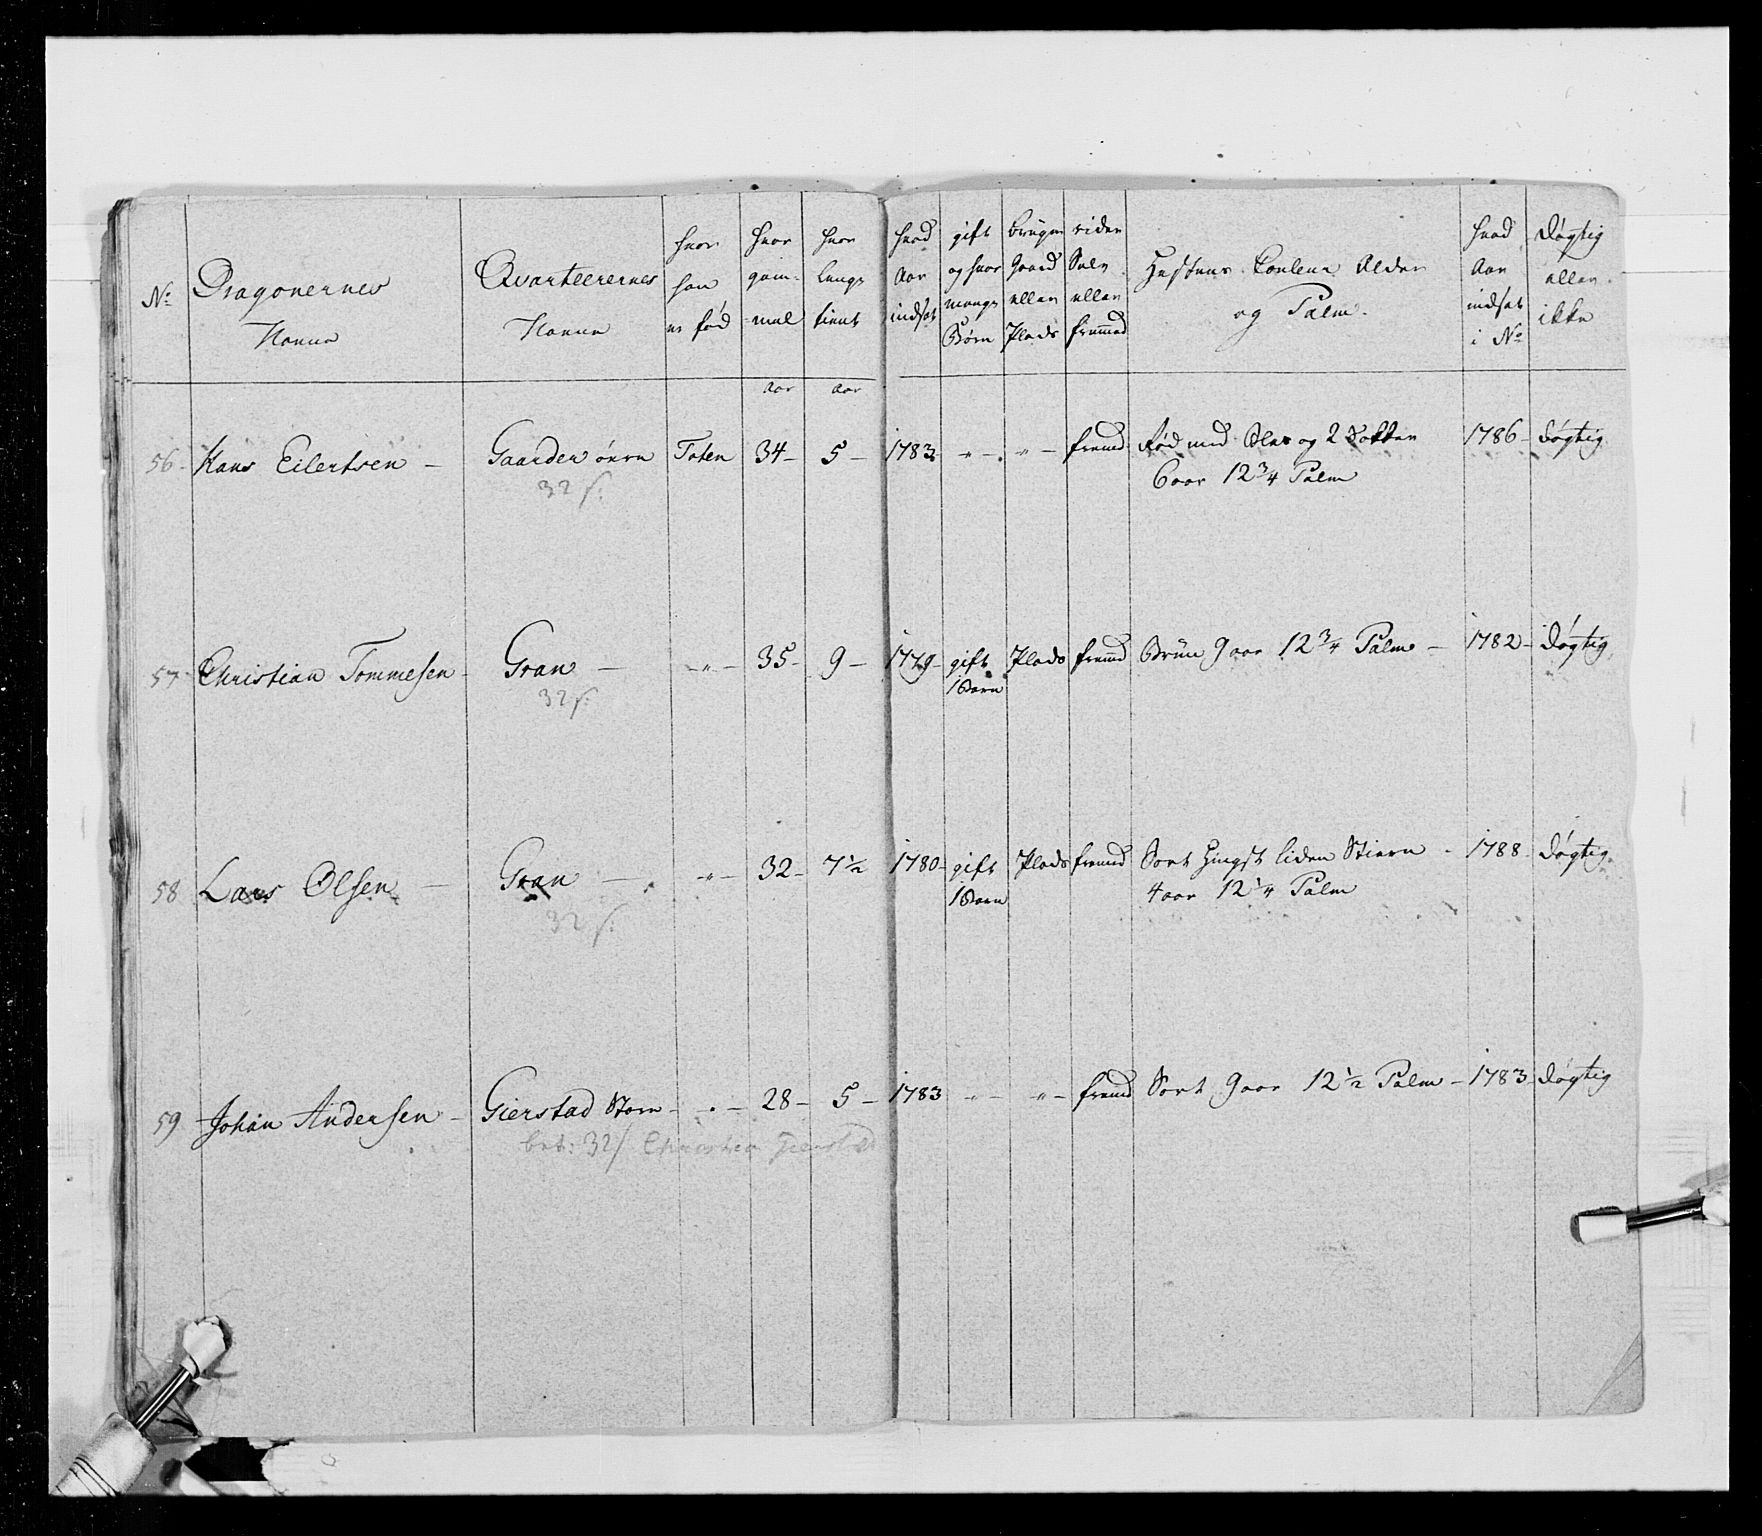 No Dragonernes Navne
Qvarteerernes Navne
hvor han er fød
hvor gam- mel
hvor længe tient
hvad Aar indsat
gift og hvor mange Børn
bruger Gaard eller Plads
rider Selv eller fremmed
Hestens Couleur Alder og Palm.
hvad Aar indsat i No
døgtig eller ikke
aar aar
56 Hans Eilertsen – Gaarder øvre Toten 34– 5– 1783 –"– –"– fremd Rød med Bles og 2 Sokker 1786– døgtig
32 s.
6 aar 12 3/4 Palm
57 Christian Tommesen– Gran – –"– 35– 9– 1779– gift Plads fremd Brun 9 aar 12 3/4 Palm – 1782– døgtig
32 s. 1 Barn
58 Lars Olsen – Gran – –"– 32– 7 1/2 1780– gift Plads fremd Sort Hingst liden Stiern – 1788– døgtig
32 s. 1 Barn 4 aar 12 1/4 Palm
59 Johan Andersen – Gierstad Store – –"– 28– 5– 1783 –"– –"– fremd Sort 9 aar 12 1/2 Palm – 1783– døgtig
bet: 32 s